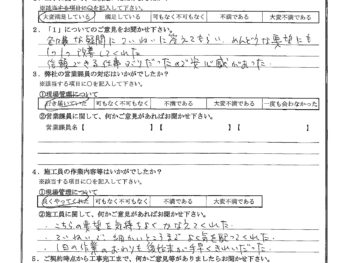 ※該当する項目に○を記入して下さい。
大変満足している 満足している 可も無く不可もなく 不満である 大変不満である
2.「1」についてのご意見をお聞かせ下さい。
な疑問に ついねいに答えてもらい めんどうな要望にも
1つ1つ 改善してくれた
信頼できる仕事 だったので安心感があった。
3.弊社の営業業員の対応はいかがでしたか?
※該当する項目に○を記入して下さい。
①現場管理について
行き届いていた 可もなく不可もなく 不満である 大変不満である 一度も会わなかった
②営業業員に関して、何かご意見があればお聞かせ下さい。
営業業員名【 】【 】【 】
4.施工員の作業内容等はいかがでしたか?
※該当する項目に○を記入して下さい。
①現場管理について
良くやってくれた 可もなく不可もなく 不満である 大変不満である
②施工員に関して、何かご意見があればお聞かせ下さい。
・こちらの要望を気持ちよく かなえてくれた。
・ていねいで 細かいところまで よく気を配ってくれた
・1日の作業のおわりも後片付が手早くきれいだった。
5.ご契約時点から工事完工まで、何かご意見等がありましたらお聞かせ下さい。